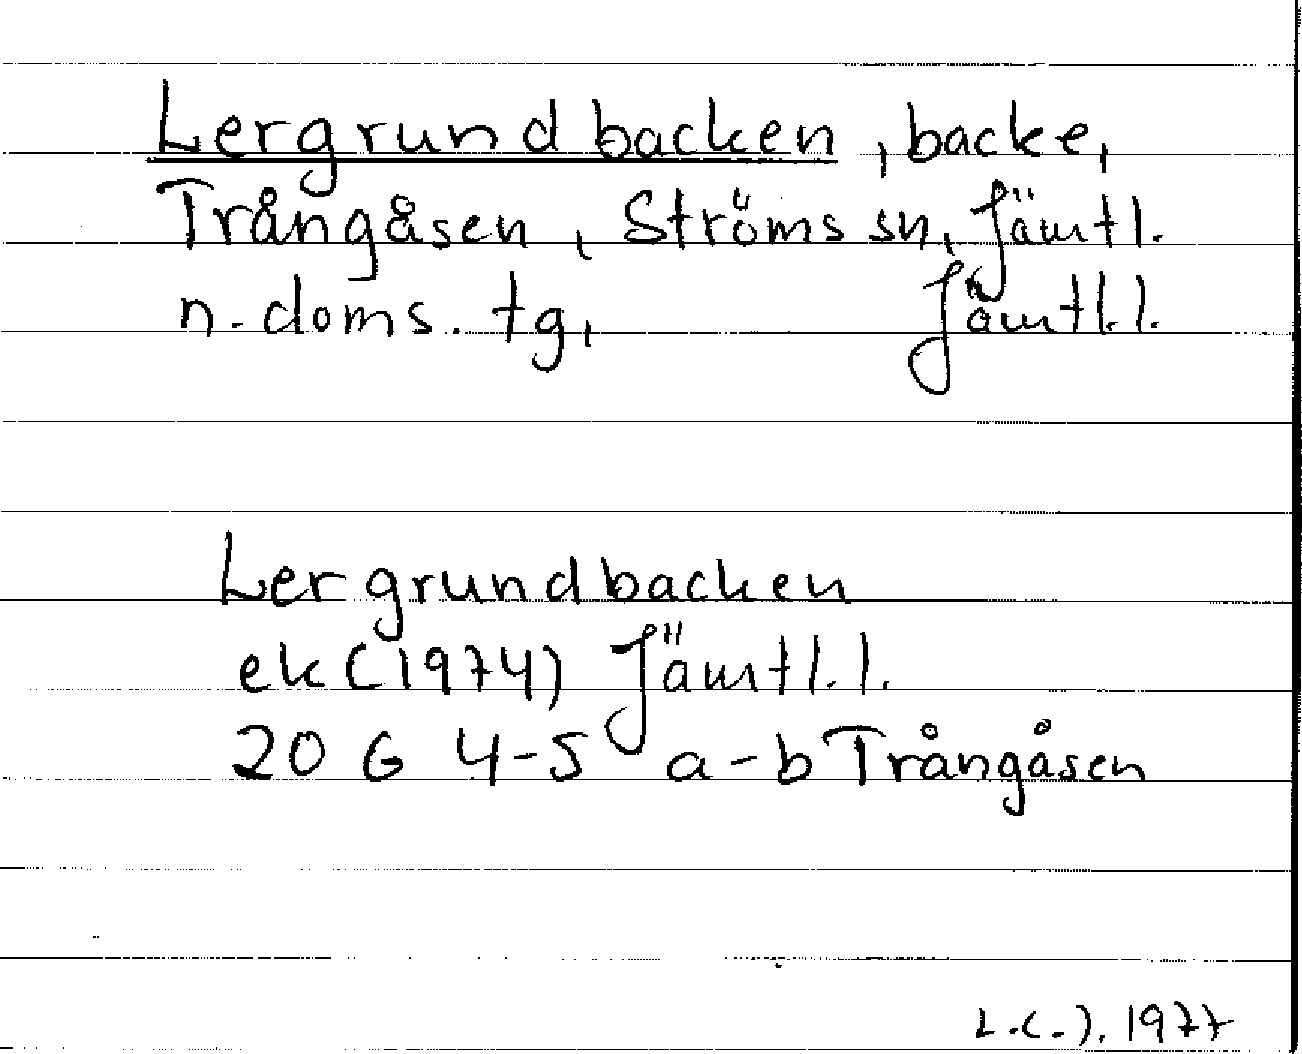 Lergrundbacken, backe,
Trångåsen, Ströms sn, Jämtl.
n. doms. tg, Jämtl. l.
Lergrundbacken
ek (1974) Jämtl. l.
20 G 4-5 a-b Trångåsen
1977